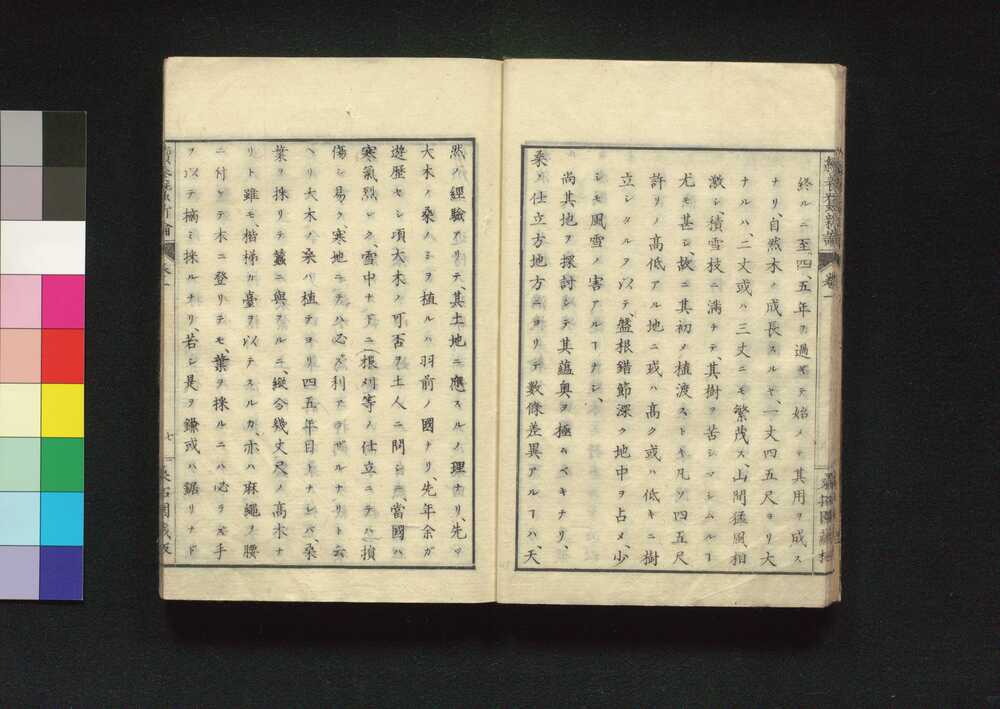 終ルニ至ル、四、五年ヲ過ギテ始メテ其用ヲ成ス
ナリ、自然木ノ成長スルヤ、一丈四五尺ヨリ大
ナルハ、二丈或ハ三丈ニモ繁茂ス、山間猛風相
激シ、積雪枝ニ満チテ、其樹ヲ苦シマシムルヿ
尤モ甚シ、故ニ其初メ植渡ストキ凡ソ四五尺
許リノ高低アル地ニ或ハ高ク或ハ低キニ樹
立シタルヲ以テ、盤根錯節深ク地中ヲ占メ、少
シモ風雪ノ害アルヿナシ、
尚其地ヲ探討シテ其蘊奥ヲ極ムベキナリ、
桑ノ仕立方地方ニヨリテ数條差異アルヿハ、天
然ノ經驗アリテ、其土地ニ應スルノ理ナリ、先ツ
大木ノ桑ノミヲ植ルハ羽前ノ國ナリ、先年余ガ
遊歴セシ頃大木ノ可否ヲ土人ニ問シニ、當國ハ
寒氣烈シク、雪中ナドニ根刈等ノ仕立ニテハ損
傷シ易ク寒地ニテハ必ズ利アラザルナリト云
ヘリ大木ノ桑ハ植テヨリ四五年目トナレバ、桑
葉ヲ採リテ蠶ニ與フルニ、縱令幾丈尺ノ高木ナ
リト雖モ、楷梯カ臺ヲ以テスルカ、亦ハ麻繩ヲ腰
ニ付ケテ木ニ登リテモ、葉ヲ採ルニハ必ラズ手
ヲ以テ摘ミ採ルナリ、若シ是ヲ鎌或ハ鋸リナド
卷一
七